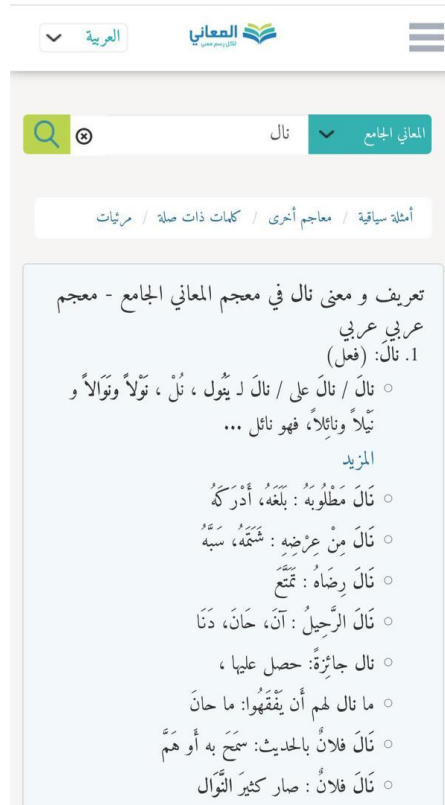 العربية
المعاني
لكل رسم معنى
المعاني الجامع
نال
أمثلة سياقية / معاجم أخرى / كلمات ذات صلة / مرئيات
تعريف و معنى نال في معجم المعاني الجامع - معجم
عربي عربي
1. نالَ: (فعل)
نالَ / نالَ على / نالَ لـ يَنُول ، نُلْ ، نَوْلاً ونَوَالاً و
نَيْلاً ونائِلاً، فهو نائل ...
المزيد
نَالَ مَطْلُوبَهُ : بَلَغَهُ، أَدْرَكَهُ
نَالَ مِنْ عِرْضِهِ : شَتَمَهُ، سَبَّهُ
نَالَ رِضَاهُ : تَمَتَّعَ
نَالَ الرَّحِيلُ : آنَ، حَانَ، دَنَا
نال جائِزةً: حصل عليها ،
ما نال لهم أَن يَفْقَهُوا: ما حانَ
نَالَ فلانٌ بالحديث: سمَحَ به أَو همَّ
نَالَ فلانٌ : صار كثيرَ النَّوَال